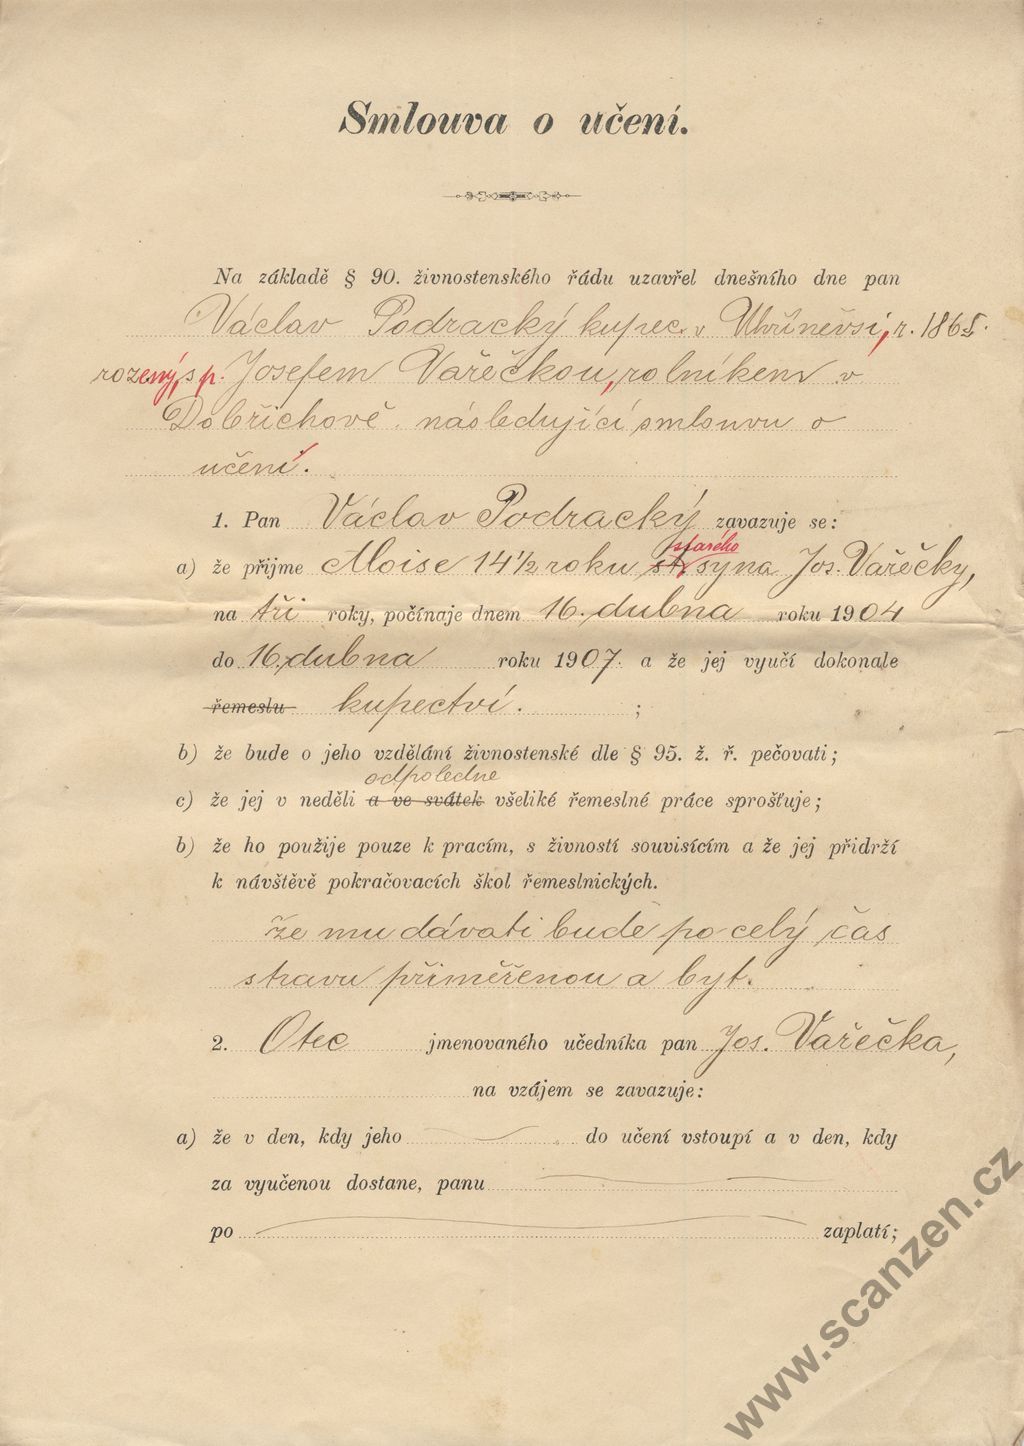 Smlouva o učení.
Na základě § 90. živnostenského řádu uzavřel dnešního dne pan
Václav Podracký kupec v Uhříněvsi, r. 1868.
rozený, s p. Josefem Vařečkou, rolníkem v
Dobřichově následující smlouvu o
učení.
1. Pan Václav Podracký zavazuje se:
starého
a) že přijme Aloise 14 1/2 roku st. syna Jos. Vařečky,
na tři roky, počínaje dnem 16. dubna roku 1904
do 16. dubna roku 1907. a že jej vyučí dokonale
řemeslu kupectví. ;
b) že bude o jeho vzdělání živnostenské dle § 95. ž. ř. pečovati;
odpoledne
c) že jej v neděli a ve svátek všeliké řemeslné práce sprošťuje;
b) že ho použije pouze k pracím, s živností souvisícím a že jej přidrží
k návštěvě pokračovacích škol řemeslnických.
že mu dávati bude po celý čas
stravu přiměřenou a byt.
2. Otec jmenovaného učedníka pan Jos. Vařečka,
na vzájem se zavazuje:
a) že v den, kdy jeho do učení vstoupí a v den, kdy
za vyučenou dostane, panu
po zaplatí;
www.scanzen.cz